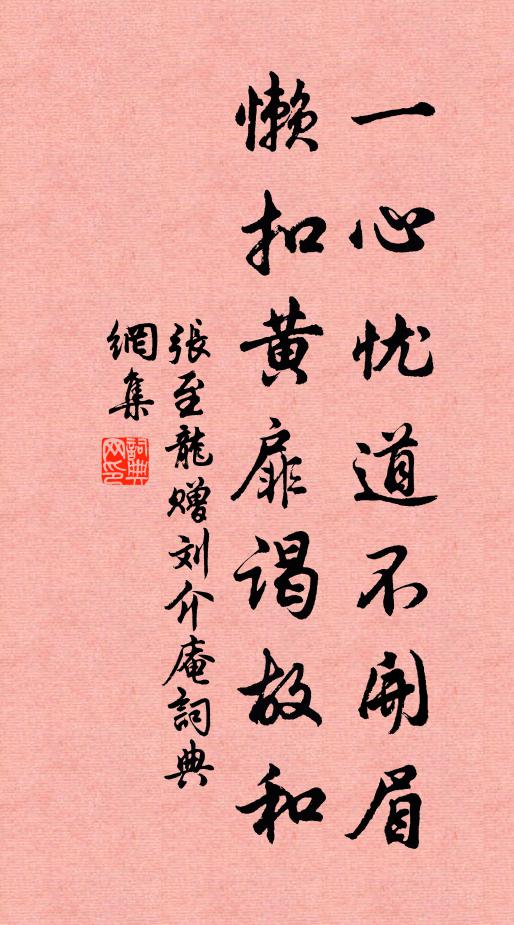 一心忧道不开眉
懒扣黄扉谒故和
張至龍赠刘介庵詞典
網集
詞典
网印